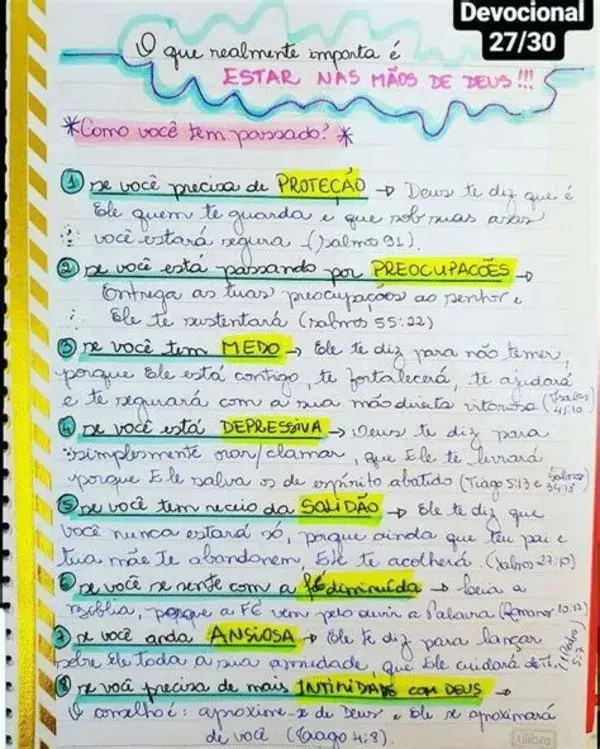 Devocional
27/30
O que realmente importa é
ESTAR NAS MÃOS DE DEUS!!!
*Como você tem passado? *
1 se você precisa de PROTEÇÃO → Deus te diz que é
Ele quem te guarda e que sob suas asas
você estará segura (Salmo 91).
2 se você está passando por PREOCUPAÇÕES →
Entrega as tuas preocupações ao senhor e
Ele te sustentará (Salmo 55:22)
3 se você tem MEDO → Ele te diz para não temer,
porque Ele está contigo, te fortalecerá, te ajudará
e te segurará com a sua mão direita vitoriosa (Isaías
41:10
4 se você está DEPRESSIVA → Deus te diz para
simplesmente orar/clamar, que Ele te livrará
porque Ele salva os de espírito abatido (Tiago 5:13 e Salmos
34:18
5 se você tem receio da SOLIDÃO → Ele te diz que
você nunca estará só, porque ainda que teu pai e
tua mãe te abandonem, Ele te acolherá. (Salmo 27:10)
6 se você se sente com a fé diminuída → leia a
Bíblia, porque a FÉ vem pelo ouvir a Palavra (Romano 10:17)
7 se você anda ANSIOSA → Ele te diz para lançar
sobre Ele toda a sua ansiedade, que Ele cuidará de ti. (1 Pedro
5:7
8 se você precisa de mais INTIMIDADE COM DEUS →
O conselho é: aproxime-se de Deus e Ele se aproximará
de você (Tiago 4:8).
tilibra